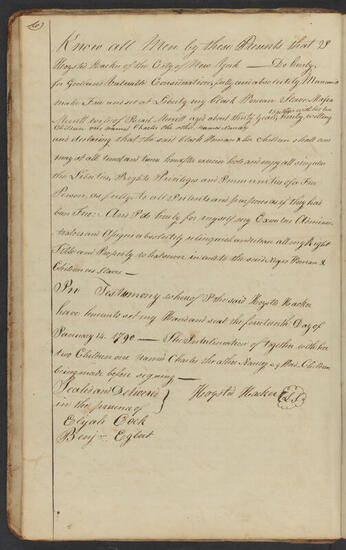 Know all Men by these Presents that I
Hoysted Hacker of the City of New York — Do hereby,
for Good and Valuable Consideration, fully and absolutely Manumit
make Free and set at Liberty my Black Woman Slave
Merrit wife of Merrit aged about thirty Years, together with her two
Children one named Charles the other named Nancy hereby willing
and declaring that the said black Woman & her Children shall and
may at all times and times hereafter exercise hold and enjoy all singular
the Liberties, Rights Privileges and Immunities of a Free
Person, as fully to all Intents and purposes as if they has
been Free — And I do hereby for myself my Executors Admini-
trators and Assigns absolutely relinquish and release all my Right
Title and Property to whatsoever in and to the said Negro Woman &
Children as Slaves —
In Testimony whereof I the said Hoysted Hacker
have hereunto set my Hand and seal the fourteenth Day of
January 14. 1790 — The Interlineation of together with her
two Children one named Charles the other Nancy & Children
being made before signing —
Sealed and Delivered
in the presence of
Hoysted Hacker L.S.
Elijah Cock
Benjn. Egbert